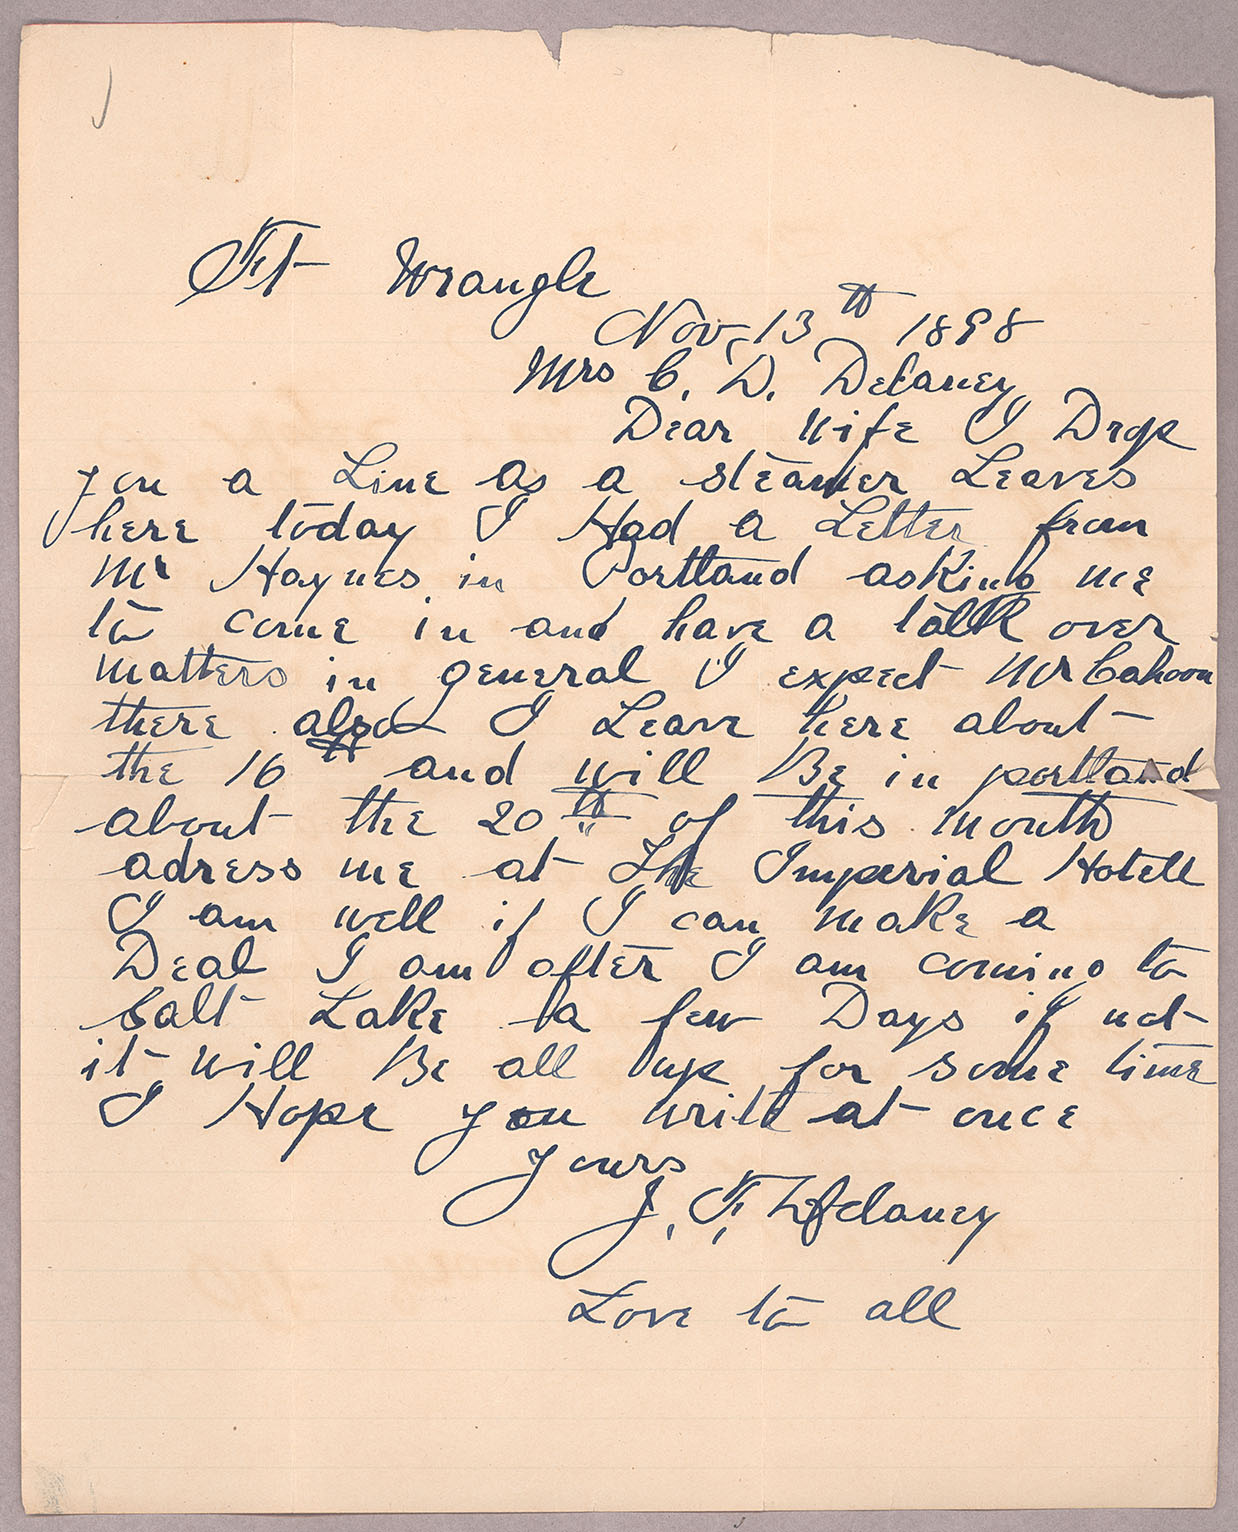 Ft Wrangle
Nov, 13th 1898
Mrs C. D. Delaney,
Dear Wife I Drop
you a Line as a steamer Leaves
here today I Had a Letter from
Mr Haynes in Portland asking me
to come in and have a talk over
matters in general I expect Mr Cahoon
there also I Leave here about
the 16th and will Be in portland
about the 20th of this month
adress me at The Imperial Hotell
I am well if I can make a
Deal I am after I am coming to
Salt Lake a few Days if not
it will Be all up for some time
I Hope you write at once
yours
J. F. Delaney
Love to all